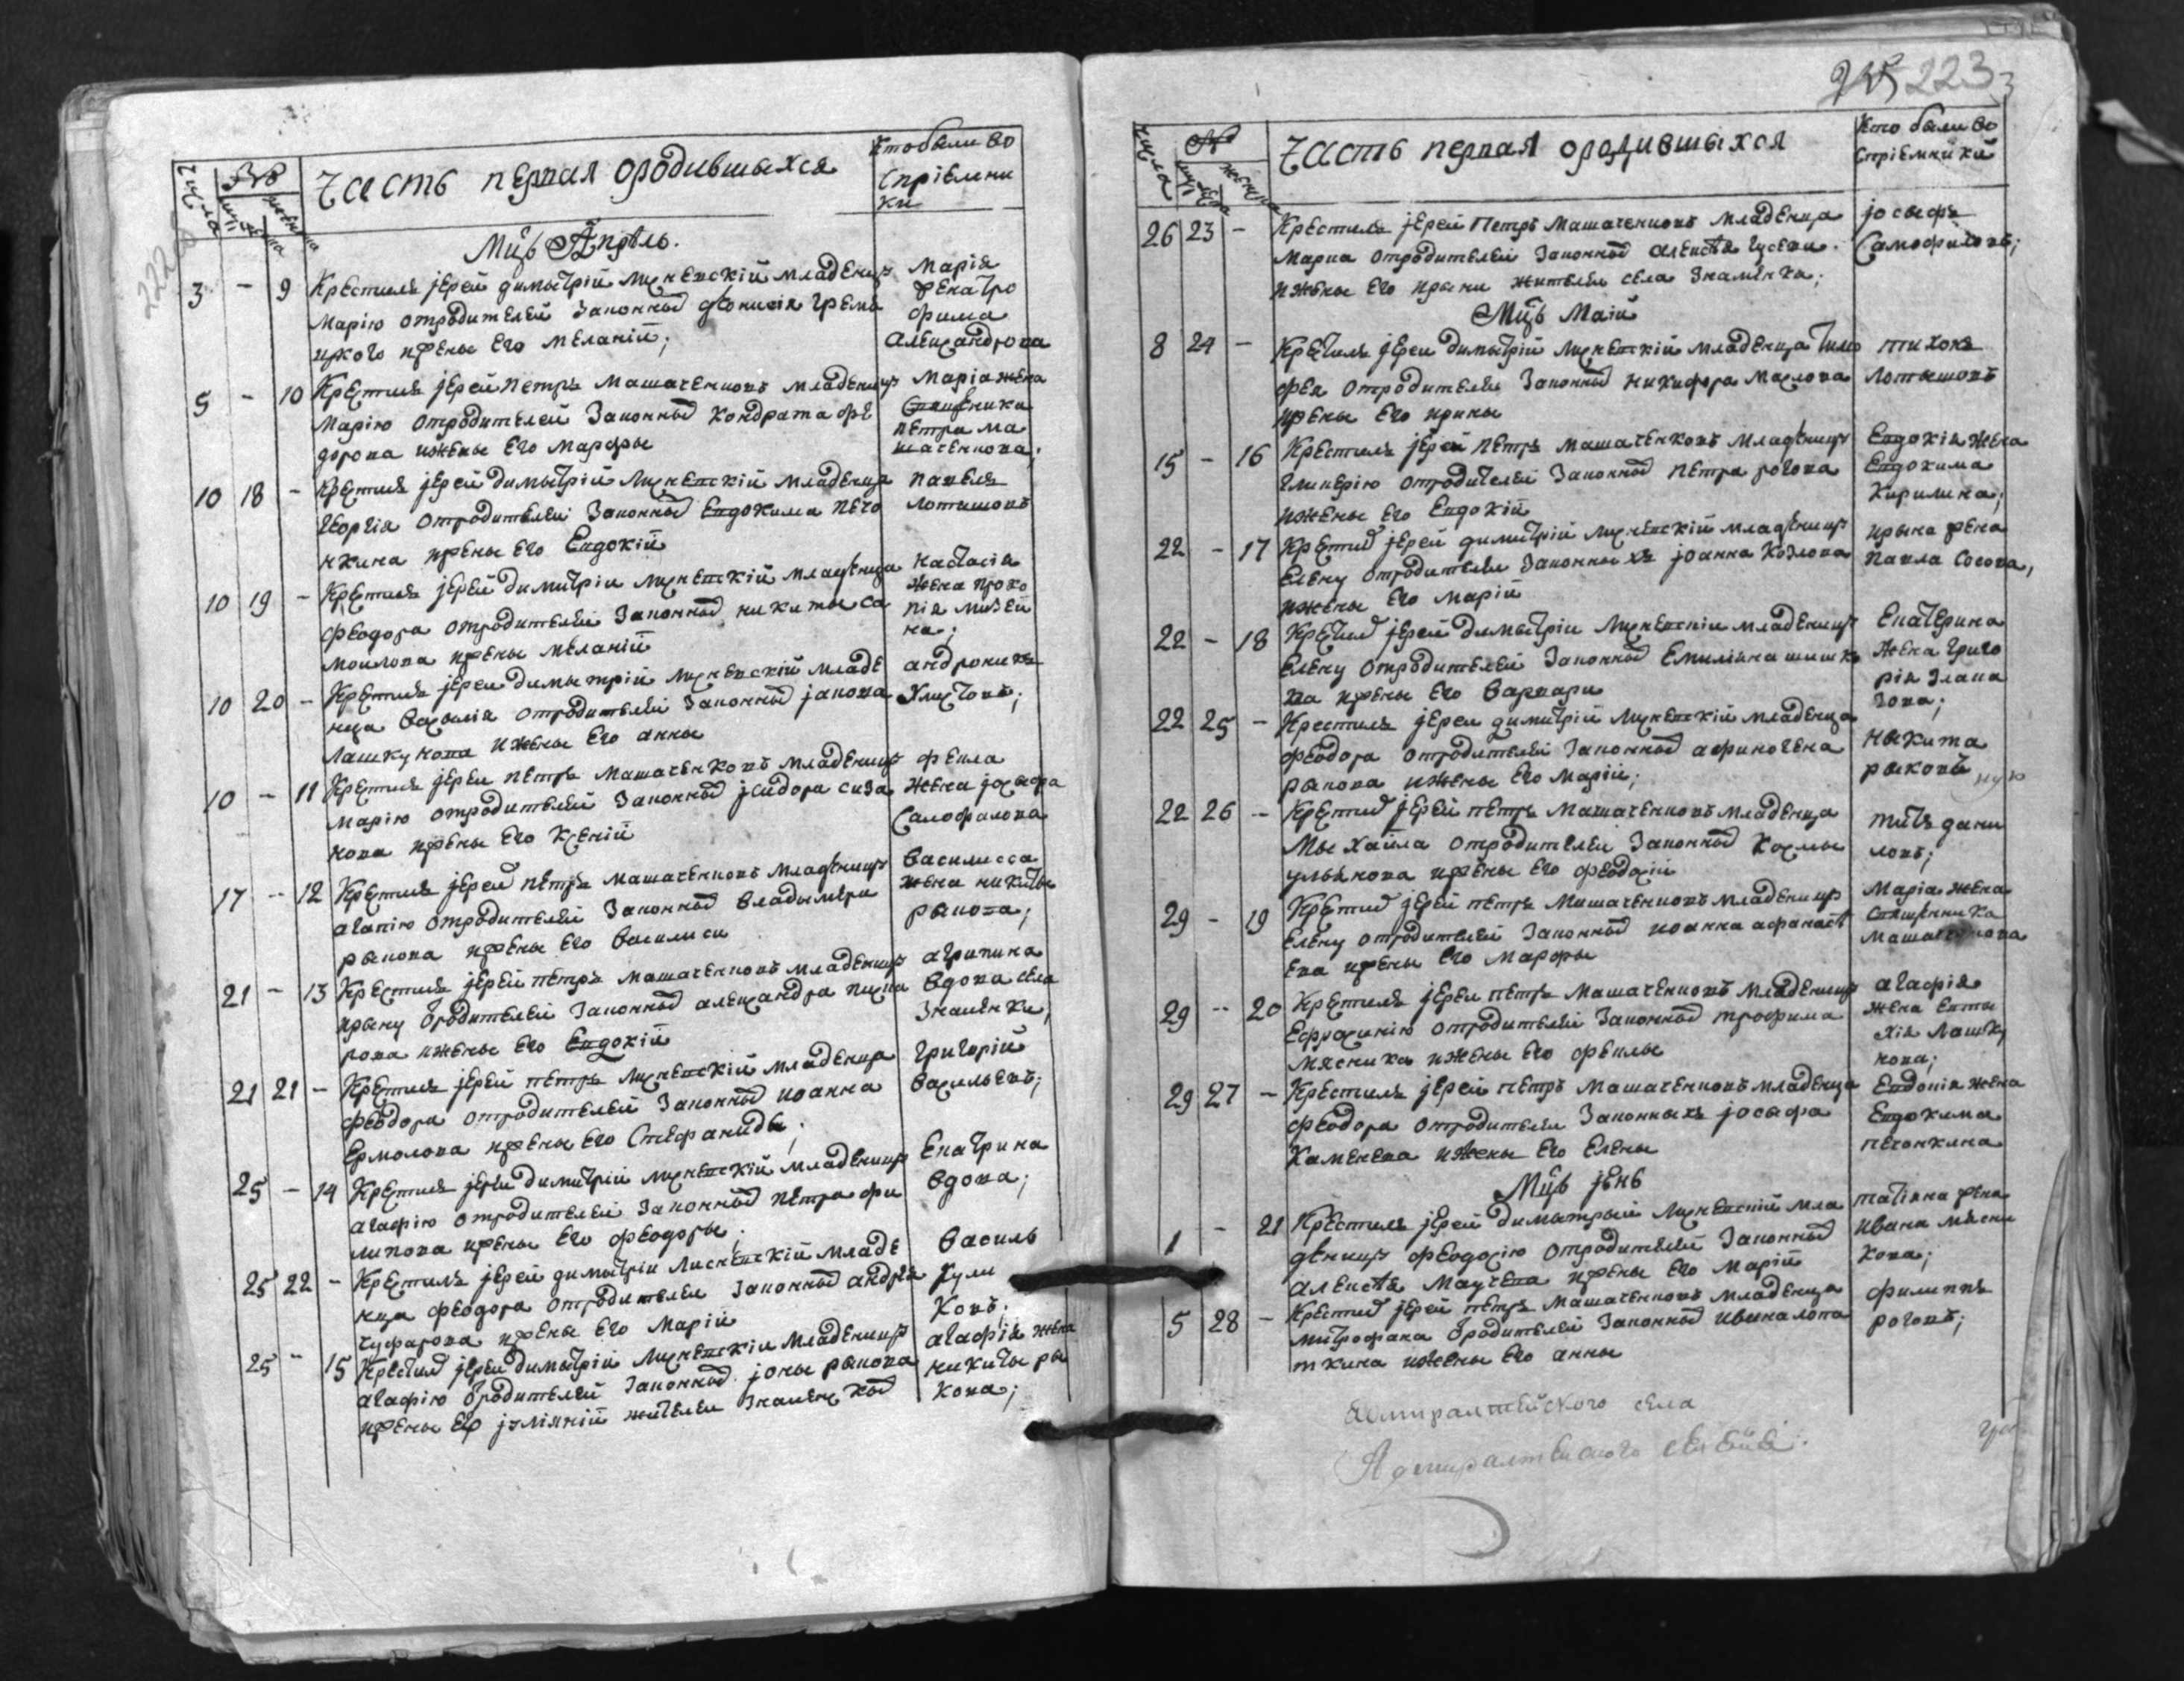 222
числа
№
мужеска
женска
Часть первая ородившыхся
Кто были во
спріемни
ки
Мц҃ъ Апрѣль.
3 - 9 Крестилъ іерей димытрій Лискевскій младеницу
Марію отродителей Законныхъ
ижены Его Меланіи;
Марія
жена тро
фима
Александрова
5 - 10 Крестилъ іерей петръ Машатенковъ младеницу
Марію отродителей Законныхъ Кондрата фе
дорова ижены Его Марфы
Маріа жена
священика
петра ма
шатенкова;
10 18 - Крестилъ іерей димытрій Лискевскій младенца
Георгія отродителей Законныхъ Евдокима пѣчо
нкина ижены Его Евдокіи
павелъ
лотышовъ
10 19 - Крестилъ іерей димитріи Лискевскій младенца
феодора отродителей Законныхъ никиты са
моилова ижены меланіи
настасія
жена проко
пія мизей
на;
10 20 - Крестилъ іереи димытрій Лискевскій младе
нца Василія отродителей Законныхъ јакова
Лашкунова ижены Его анны
андроникъ
Улистовъ;
10 - 11 Крестилъ іереи петръ Машатенковъ младеницу
Марію отродителей Законныхъ јсидора сиза
нова ижены Его Ксеніи
фекла
жена јосыфа
Самофалова
17 - 12 Крестилъ іерей петръ машатенковъ младеницу
агапію отродителей Законныхъ владымера
рыкова ижены Его Василиси
Василисса
жена никиты
рыкова;
21 - 13 Крестилъ іерей петръ машатенковъ младеницу
ирыну ѿродителей Законныхъ александра
рова ижены Его Евдокіи
агрипина
вдова села
Знаменки;
21 21 - Крестилъ іерей петръ Лискевскій младенца
феодора отродителей Законныхъ иоанна
Ермолова ижены Его Стефаниды;
григорій
Васильевъ;
25 - 14 Крестилъ іерей димитрій Лискевскій младеницу
агафію отродителей Законныхъ петра фи
липова ижены Его феодоры;
Екатрина
вдова;
25 22 - Крестилъ іерей димытріи Лискевскій младе
нца феодора отродителеи Законныхъ андрея
чуфарова ижены Его Маріи
Василь
Кули
Ковъ;
25 - 15 Крестилъ іереи димытріи Лискевскіи младеницу
агафію ѿродителей Законныхъ јоны рыкова
ижены Его јулияніи жителеи Знаменскихъ
агафія жена
никиты ры
кова;
223
числа
№
мужеска
женска
Часть первая ородившыхся
Кто были во
спріемники
26 23 - Крестилъ јерей Петръ Машатенковъ младенца
Марка отродителей Законныхъ алексѣя гусева
ижены Его ирыни жителеи села Знаменка;
јосыфъ
Самофаловъ;
Мц҃ъ Маій
8 24 - Крестилъ јереи димытрій Лискевскій младенца тимо
фея отродителеи Законныхъ никифора Маслова
ижены Его ирины
тихонъ
лотышовъ
15 - 16 Крестилъ јерей петръ машатенковъ младеницу
гликерію отродителей Законныхъ петра рогова
ижены Его Евдокіи
Евдокія жена
Евдокима
Кирилина;
22 - 17 Крестилъ јерей димитрій Лискевскій младеницу
Елену отродителеи Законныхъ јоанна Козлова
ижены Его Маріи
ирына жена
павла Сосова,
22 - 18 Крестилъ јерей димытріи Лискевскіи младеницу
Елену отродителей Законныхъ Емиліяна шишк
на ижены Его Варвари
Екатерина
жена григо
рія Злана
това;
22 25 - Крестилъ јереи димитрій Лискевскій младенца
феодора отродителей Законныхъ афиногена
рыкова ижены Его Маріи;
ныкита
рыковъ
22 26 - Крестилъ јерей петръ Машатенковъ младенца
Мыхайла отродителей Законныхъ Космы
улянова ижены Его феодосіи
титъ дани
ловъ;
29 - 19 Крестилъ јерей петръ Машатенковъ младеницу
Елену отродителей Законныхъ иоанна афанасі
ева ижены Его Марфы
Маріа жена
священника
Машатенкова
29 - 20 Крестилъ јереи петръ Машатенковъ младеницу
Ефросинію отродителей Законныхъ трофима
Мясника ижены Его феклы
агафія
жена Евты
хія Лашку
нова;
29 27 - Крестилъ јерей петръ Машатенковъ младенца
феодора отродителеи Законныхъ јосыфа
Каменева ижены Его Елены
Евдокія жена
Евдокима
печонкина
Мц҃ъ јюнь
1 - 21 Крестилъ јерей димытрый Лискевскій мла
деницу феодосію отродителей Законныхъ
алексѣя ижены Его Маріи
татіяна жена
ивана мясни
кова;
5 28 - Крестилъ јерей петръ Машатенковъ младенца
митрофана ѿродителей Законныхъ ивана лопа
ткина ижены Его анны
филиппъ
роговъ;
Адмиралтейского села
Адмиралтейского